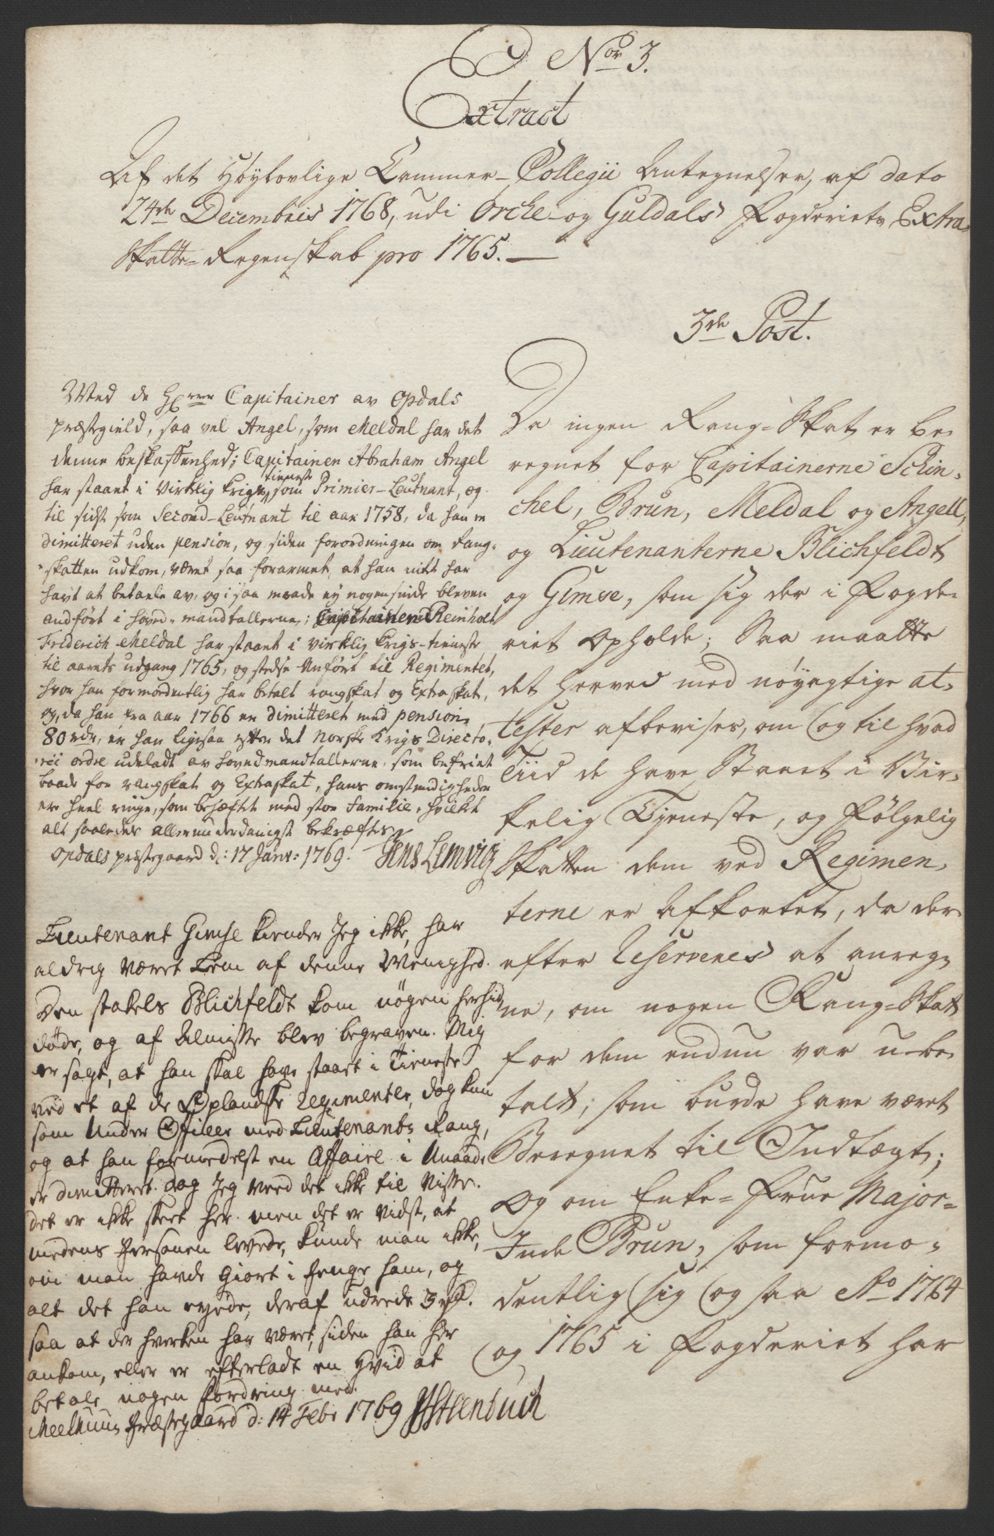 Nor 3.
Extract
Af det Høylovlige Cammer-Collegii Antegnelser, af dato
24de Decembris 1768, udi Orche- og Guldals Fogderiets Extra
Skatte-Regenskab pro 1765.
3de Post.
Da ingen Rang-Skat er be-
regnet for Capitainerne Schin-
chel, Brun, Meldal og Angell,
og Lieutenanterne Blichfeldt
og Gimse, som sig der i Fogde-
riet opholde; Saa maatte
det herved med nøyagtige at-
tester afbevises, om (og til hvad
Tiid de have Staaet i Vir-
kelig Tjeneste, og følgelig
Skatten dem ved Regimen-
terne er afkortet, da der-
efter Reserveres at anreg-
ne, om nogen Rang-Skatt
for dem endnu var ube-
talt; som burde have været
Beregnet til Indtægt;
Og om Enke-Frue Major-
Inde Brun, som formo-
dentlig sig (ogsaa Ao 1764
og 1765 i Fogderiet har
Med de Hrrer Capitainer av Opdals
præstegield, saa vel Angel, som Meldal har det
denne beskaffenhed; Capitainen Abraham Angel
har staaet i virklig Krigs tieneste som Primier-Leutnant, og
til sidst som Second-Leutnant til aar 1758, da han er
dimitteret uden pension, og siden forordningen om Rang-
skatten udkom, været saa forarmet, at han intet har
havt at betale av, og i saa maade ey nogensinde bleven
andført i hoved-mandtallerne; Capitainen Reinholt
Friderich Meldal har staaet i virklig Krigs-tieneste
til aarets udgang 1765, og stedse anført til Regimentet,
hvor han formodentlig har betalt rangskat og Extraskat,
og, da han fra aar 1766 er dimitteret med pension
80 rdr, er han ligesaa efter det Norske Krigs Directo-
rii ordre udeladt av hovedmandtallerne som befriet
baade for rangskat og Extraskat, hans omstendigheder
er heel ringe, som besæftet med stor Familie, hvilket
alt saaledes allerunderdanigst bekræftes
Opdals præstegaard d: 17 Janr: 1769. Jens Lemvig
Lieutenant Gimse kiender Jeg ikke, har
aldrig været Lem af denne Menighed.
Den stakels Blichfeldt kom nøgen herhid
døde, og af Almisse blev begraven. Mig
er sagt, at han skal have staaet i Tieneste
ved et af de Oplandske Regimenter, dog kun
som Under Officer med Lieutenants Rang,
og at han formedelst en Affaire i Unaade
er dimitteret. dog Jeg veed det ikke til visse.
det er ikke skeet her. men det er vidst, at
medens Personen levede, kunde man ikke,
om man havde giort i penge ham, og
alt det han eyede, deraf udrede 3 ß.
saa at der hverken har været, siden han her
ankom, eller er efterladt en Hvid at
betale nogen fordring med.
Meelhuus Præstegaard d: 14 Febr 1769 Steenbuch